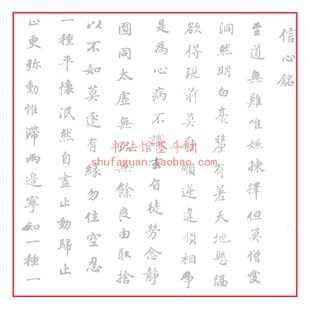 信心銘
至道無難唯嫌揀擇但莫憎愛
洞然明白毫釐有差天地懸隔
欲得現前莫存順逆違順相爭
是為心病不識玄旨徒勞念靜
圓同太虛無欠無餘良由取捨
以不如莫逐有緣勿住空忍
一種平懷泯然自盡止動歸止
止更彌動惟滯兩邊寧知一種一
书法馆墨斗
shufaguan.taobao.com